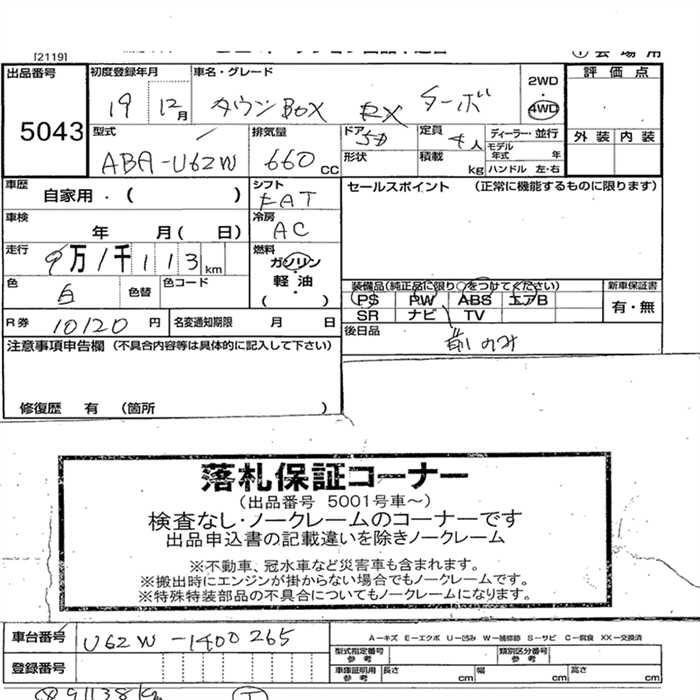 [2119]
会場用
出品番号 初度登録年月 車名・グレード 2WD 評価点
5043 19 12月 タウンBOX RX ターボ 4WD
型式 排気量 ドア 定員 ディーラー・並行 外装 内装
ABA-U62W 660cc 5D 4人 モデル年式 年
形状 積載 kg ハンドル 左・右
車歴 自家用・( ) シフト FAT セールスポイント (正常に機能するものに限ります)
車検 年 月( 日) 冷房 AC
走行 9万1千113km 燃料 ガソリン
色 白 色替 色コード 軽油
( )
装備品(純正品に限り○をつけてください) 新車保証書
PS PW ABS エアB 有・無
SR ナビ TV
R券 10120円 名変通知期限 月 日 後日品
前のみ
注意事項申告欄 (不具合内容等は具体的に記入して下さい)
修復歴 有 (箇所 )
落札保証コーナー
(出品番号 5001号車～)
検査なし・ノークレームのコーナーです
出品申込書の記載違いを除きノークレーム
※不動車、冠水車など災害車も含まれます。
※搬出時にエンジンが掛からない場合でもノークレームです。
※特殊特装部品の不具合についてもノークレームになります。
車台番号 U62W-1400265 A－キズ E－エクボ U－凹み W－補修跡 S－サビ C－腐食 XX－交換済
型式指定番号 参考 類別区分番号 参考
登録番号 車庫証明用 参考 長さ cm 幅 cm 高さ cm